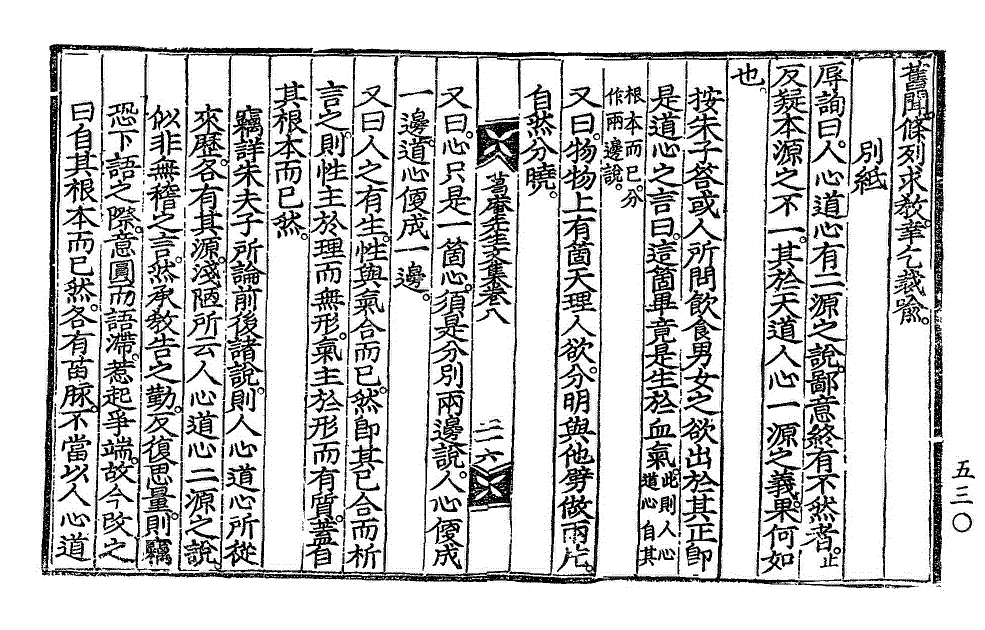 舊聞。條列求敎。幸乞裁喩。
別紙
辱詢曰。人心道心有二源之說。鄙意終有不然者。止
反疑本源之不一。其於天道人心一源之義。果何如
也。
按朱子答或人所問飮食男女之欲出於其正卽
是道心之言曰。這箇畢竟是生於血氣。此則人心道心自其
根本而已分作兩邊說。
又曰。物物上有箇天理人欲。分明與他劈做兩片。
自然分曉。
葛庵先生文集卷八
二十六
又曰。心只是一箇心。須是分別兩邊說。人心便成
一邊。道心便成一邊。
又曰人之有生。性與氣合而已。然卽其已合而析
言之。則性主於理而無形。氣主於形而有質。蓋自
其根本而已然。
竊詳朱夫子所論前後諸說。則人心道心所從
來歷。各有其源。淺陋所云人心道心二源之說。
似非無稽之言。然承敎告之勤。反復思量。則竊
恐下語之際。意圓而語滯。惹起爭端。故今改之
曰自其根本而已然。各有苗脉。不當以人心道
五三〇